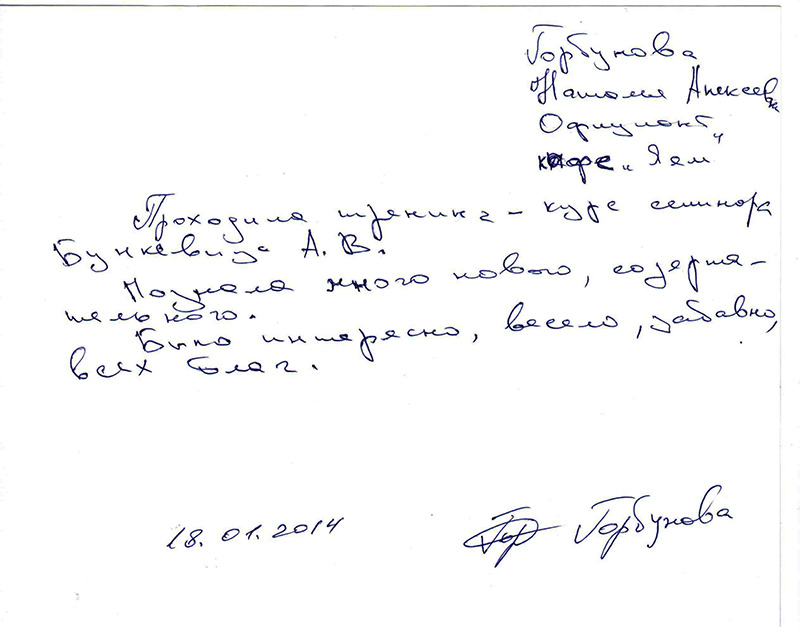 Горбунова
Наталия Алексеевна
Официант
кафе „Я ем"
Проходила тренинг – курс семинара
Бункевича А. В.
Познала много нового, содержа-
тельного.
Было интересно, весело, забавно,
всех благ.
18.01.2014 Гор Горбунова